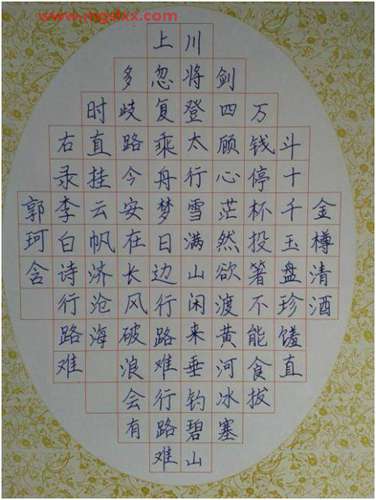 金樽清酒
斗十千玉盘珍馐直
万钱停杯投箸不能食拔
剑四顾心茫然欲渡黄河冰塞
川将登太行雪满山闲来垂钓碧山
上忽复乘舟梦日边行路难行路难
多歧路今安在长风破浪会有
时直挂云帆济沧海
右录李白诗行路难
郭珂含